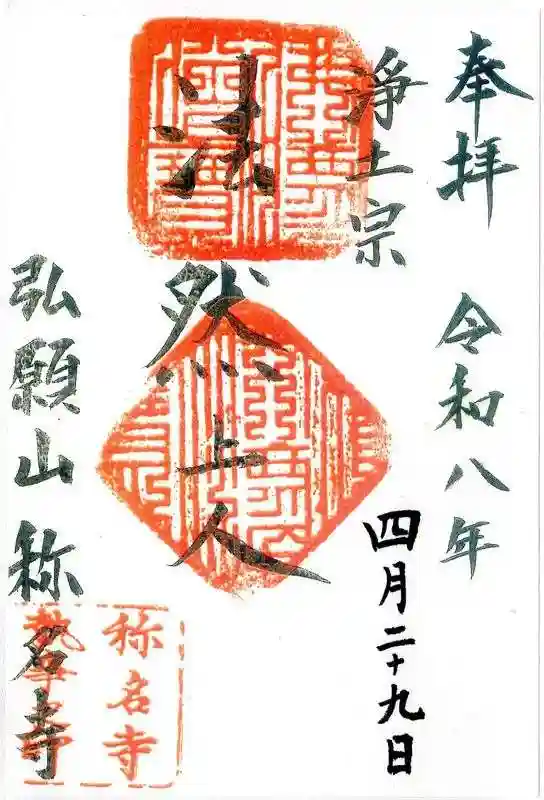 奉拝
令和八年
四月二十九日
浄土宗
法然上人
弘願山称名寺
称名寺